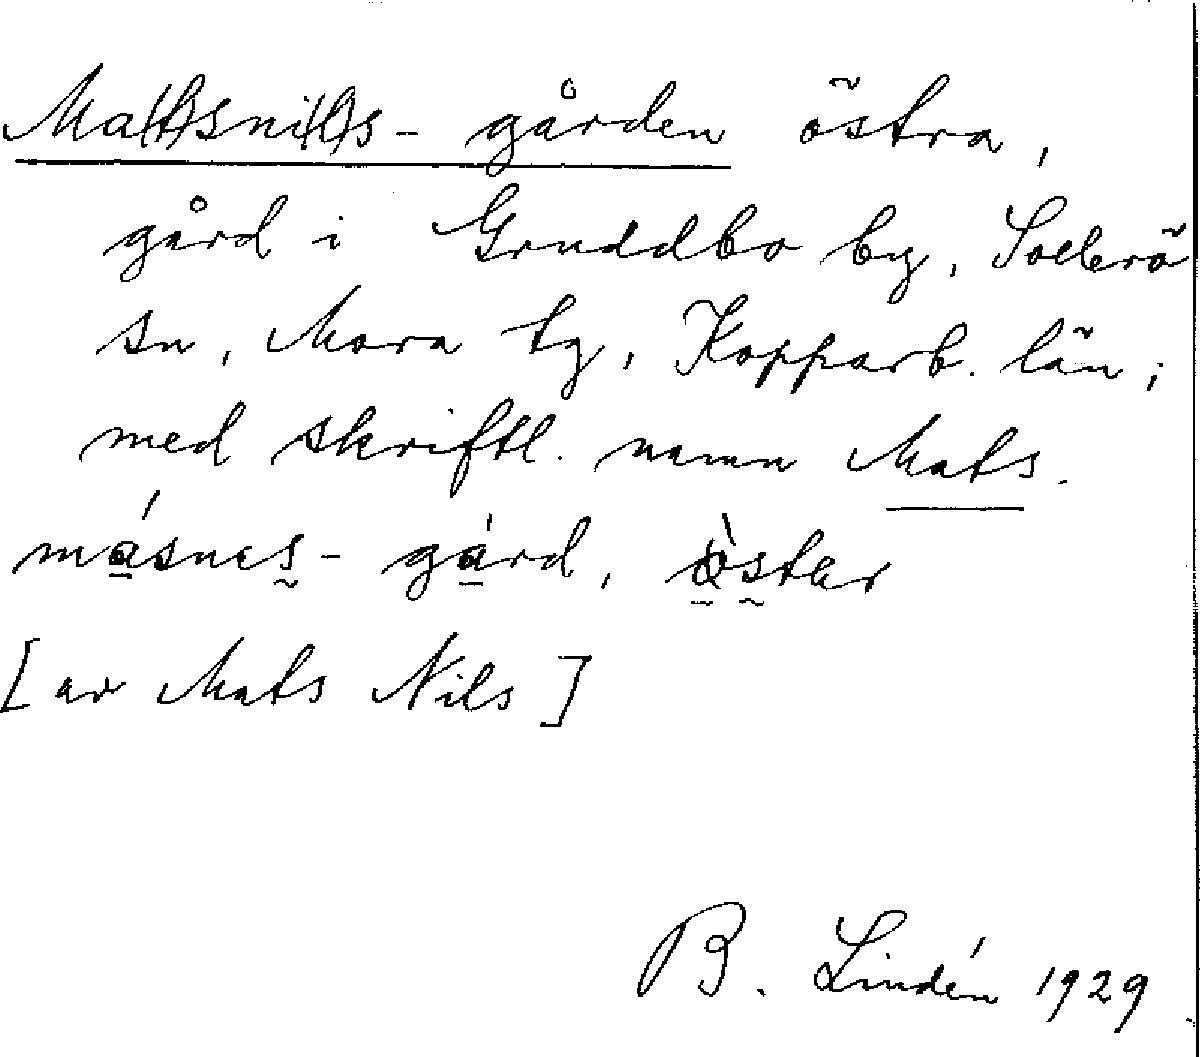 Ma(t)sni(l)s-gården östra,
gård i Gruddbo by, Sollerö
sn, Mora tg, Kopparb. län;
med skriftl. namn Mats.
másnes-gárd, òster
[av Mats Nils]
B. Lindén 1929